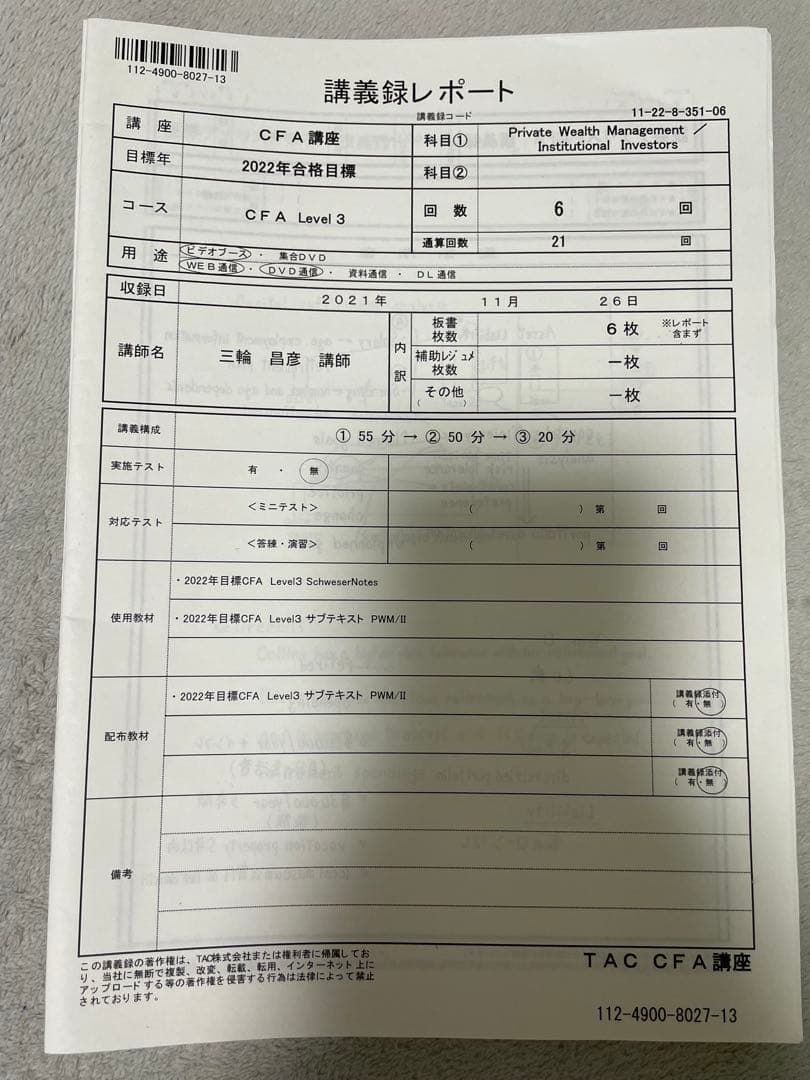 112-4900-8027-13
講義録レポート
講義録コード
11-22-8-351-06
講 座
CFA講座
科目①
Private Wealth Management ／
Institutional Investors
目標年
2022年合格目標
科目②
コース
CFA Level 3
回 数
6
回
通算回数
21
回
用 途
ビデオブース ・ 集合DVD
WEB通信 ・ DVD通信 ・ 資料通信 ・ DL通信
収録日
2021年
11月
26日
講師名
三輪 昌彦 講師
内訳
板書
枚数
6 枚
※レポート
含まず
補助レジュメ
枚数
－枚
その他
( )
－枚
講義構成
① 55 分 → ② 50 分 → ③ 20 分
実施テスト
有 ・ 無
対応テスト
＜ミニテスト＞
( ) 第 回
＜答練・演習＞
( ) 第 回
使用教材
・2022年目標CFA Level3 SchweserNotes
・2022年目標CFA Level3 サブテキスト PWM/II
配布教材
・2022年目標CFA Level3 サブテキスト PWM/II
講義録添付
( 有・無 )
講義録添付
( 有・無 )
講義録添付
( 有・無 )
備考
この講義録の著作権は、TAC株式会社または権利者に帰属してお
り、当社に無断で複製、改変、転載、転用、インターネット上に
アップロードする等の著作権を侵害する行為は法律によって禁止
されております。
TAC CFA講座
112-4900-8027-13